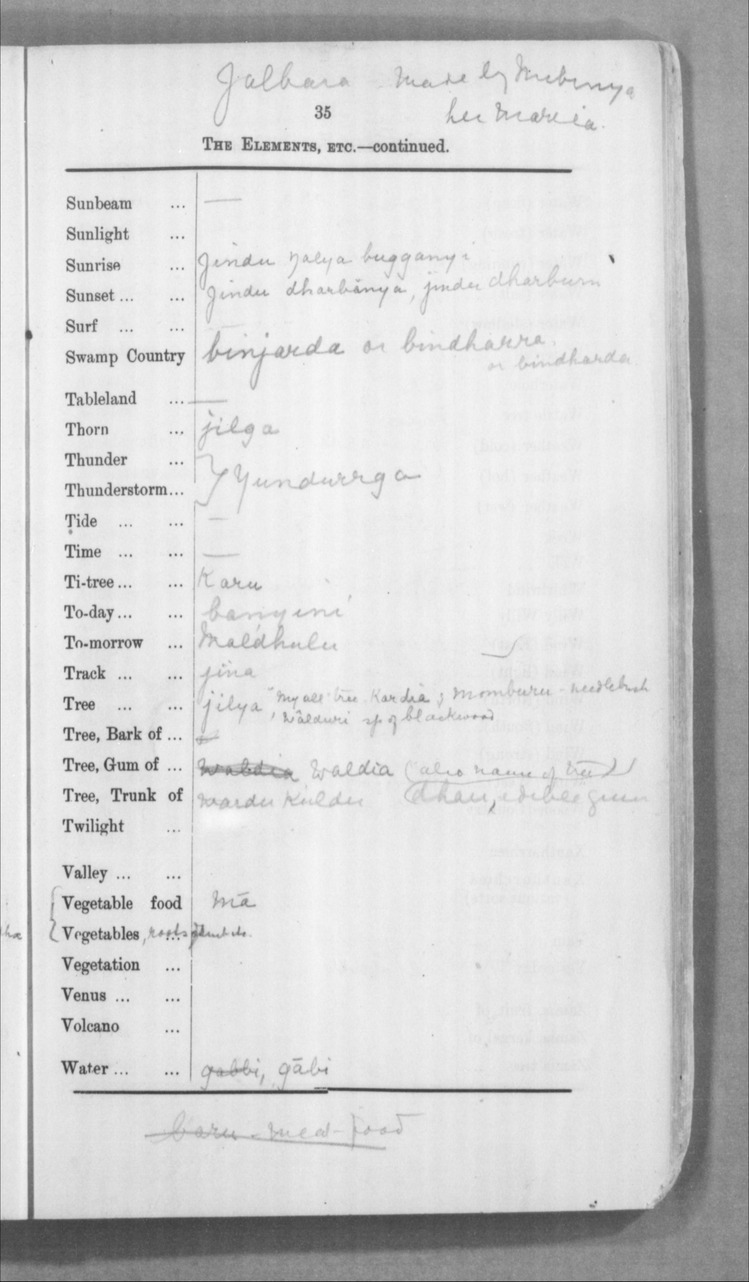 Jalbara made by Nubinya
35 her Maria.
THE ELEMENTS, ETC.—continued.
Sunbeam ... —
Sunlight ...
Sunrise ... Jindu ngalya bugganyi
Sunset ... ... Jindu dharbănya, jindu dharburn
Surf ... ...
Swamp Country binjarda or bindharra
or bindharda
Tableland ... —
Thorn ... jilga
Thunder ...
Thunderstorm ... } Yundurrga
Tide ... ... —
Time ... ... —
Ti-tree ... ... Karu
To-day ... ... banyini
To-morrow ... Maldhulu
Track ... ... jina
Tree ... ... jilya, myall tree Kardia, momburu - needlebush
walduri sp. of blackwood
Tree, Bark of ...
Tree, Gum of ... Waldia Waldia (also name of tree)
Tree, Trunk of wardu Kuldu (dhau, edible gum
Twilight ...
Valley ... ...
Vegetable food mā
Vegetables, roots, fruit etc.
Vegetation ...
Venus ... ...
Volcano ...
Water ... ... gabbi, gābi
baru - meat food